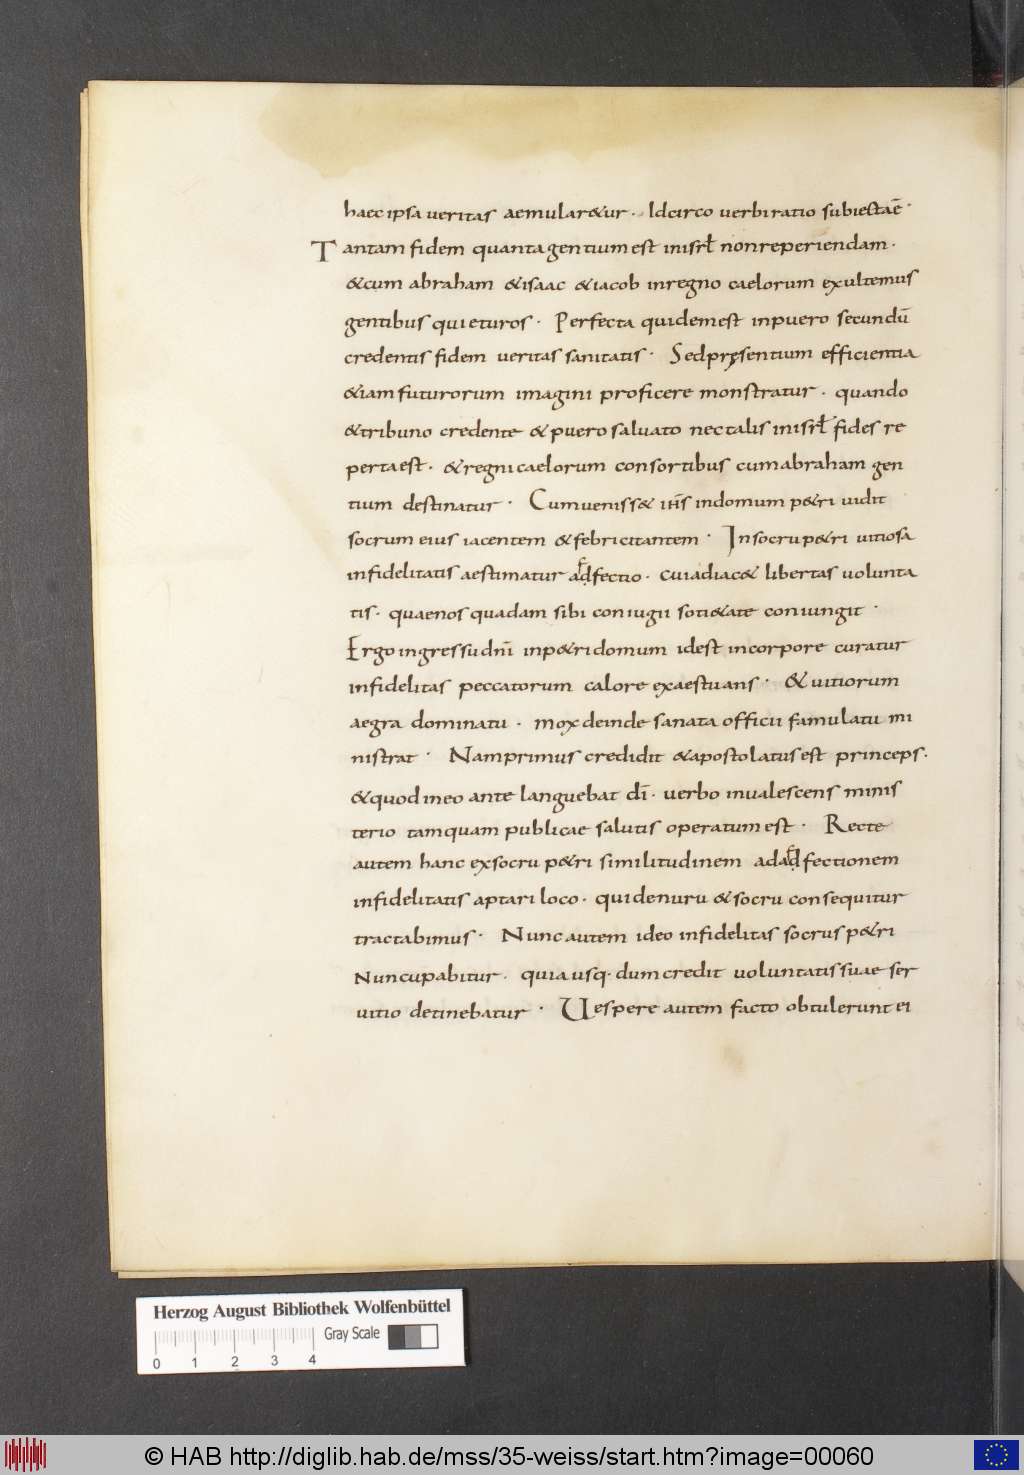 haec ipsa veritas aemular&ur · Idcirco verbi ratio subiecta ē ·
Tantam fidem quanta gentium est in isrł non reperiendam ·
& cum abraham & isaac & iacob in regno caelorum exultemus
gentibus quieturos · Perfecta quidem est in puero secundū
credentis fidem veritas sanitatis · Sed pręsentium efficientia
& iam futurorum imagini proficere monstratur · quando
& tribuno credente & puero salvato nec talis in isrł fides re
perta est · & regni caelorum consortibus cum abraham gen
tium destinatur · Cum veniss& ih̄s in domum p&ri vidit
socrum eius iacentem & febricitantem · In socru p&ri vitiosa
infidelitatis aestimatur adfectio · cui adiac& libertas volunta
tis · quae nos quadam sibi coniugii soti&ate coniungit ·
Ergo ingressu dn̄i in p&ri domum id est in corpore curatur
infidelitas peccatorum calore exaestuans · & vitiorum
aegra dominatu · mox deinde sanata officii famulatu mi
nistrat · Nam primus credidit & apostolatus est princeps ·
& quod in eo ante languebat dī · verbo invalescens minis
terio tamquam publicae salutis operatum est · Recte
autem hanc ex socru p&ri similitudinem ad adfectionem
infidelitatis aptari loco · qui de nuru & socru consequitur
tractabimus · Nunc autem ideo infidelitas socrus p&ri
Nuncupabitur · quia usq· dum credit voluntatis suae ser
vitio detinebatur · Vespere autem facto obtulerunt ei
Herzog August Bibliothek Wolfenbüttel
Gray Scale
0 1 2 3 4
© HAB http://diglib.hab.de/mss/35-weiss/start.htm?image=00060